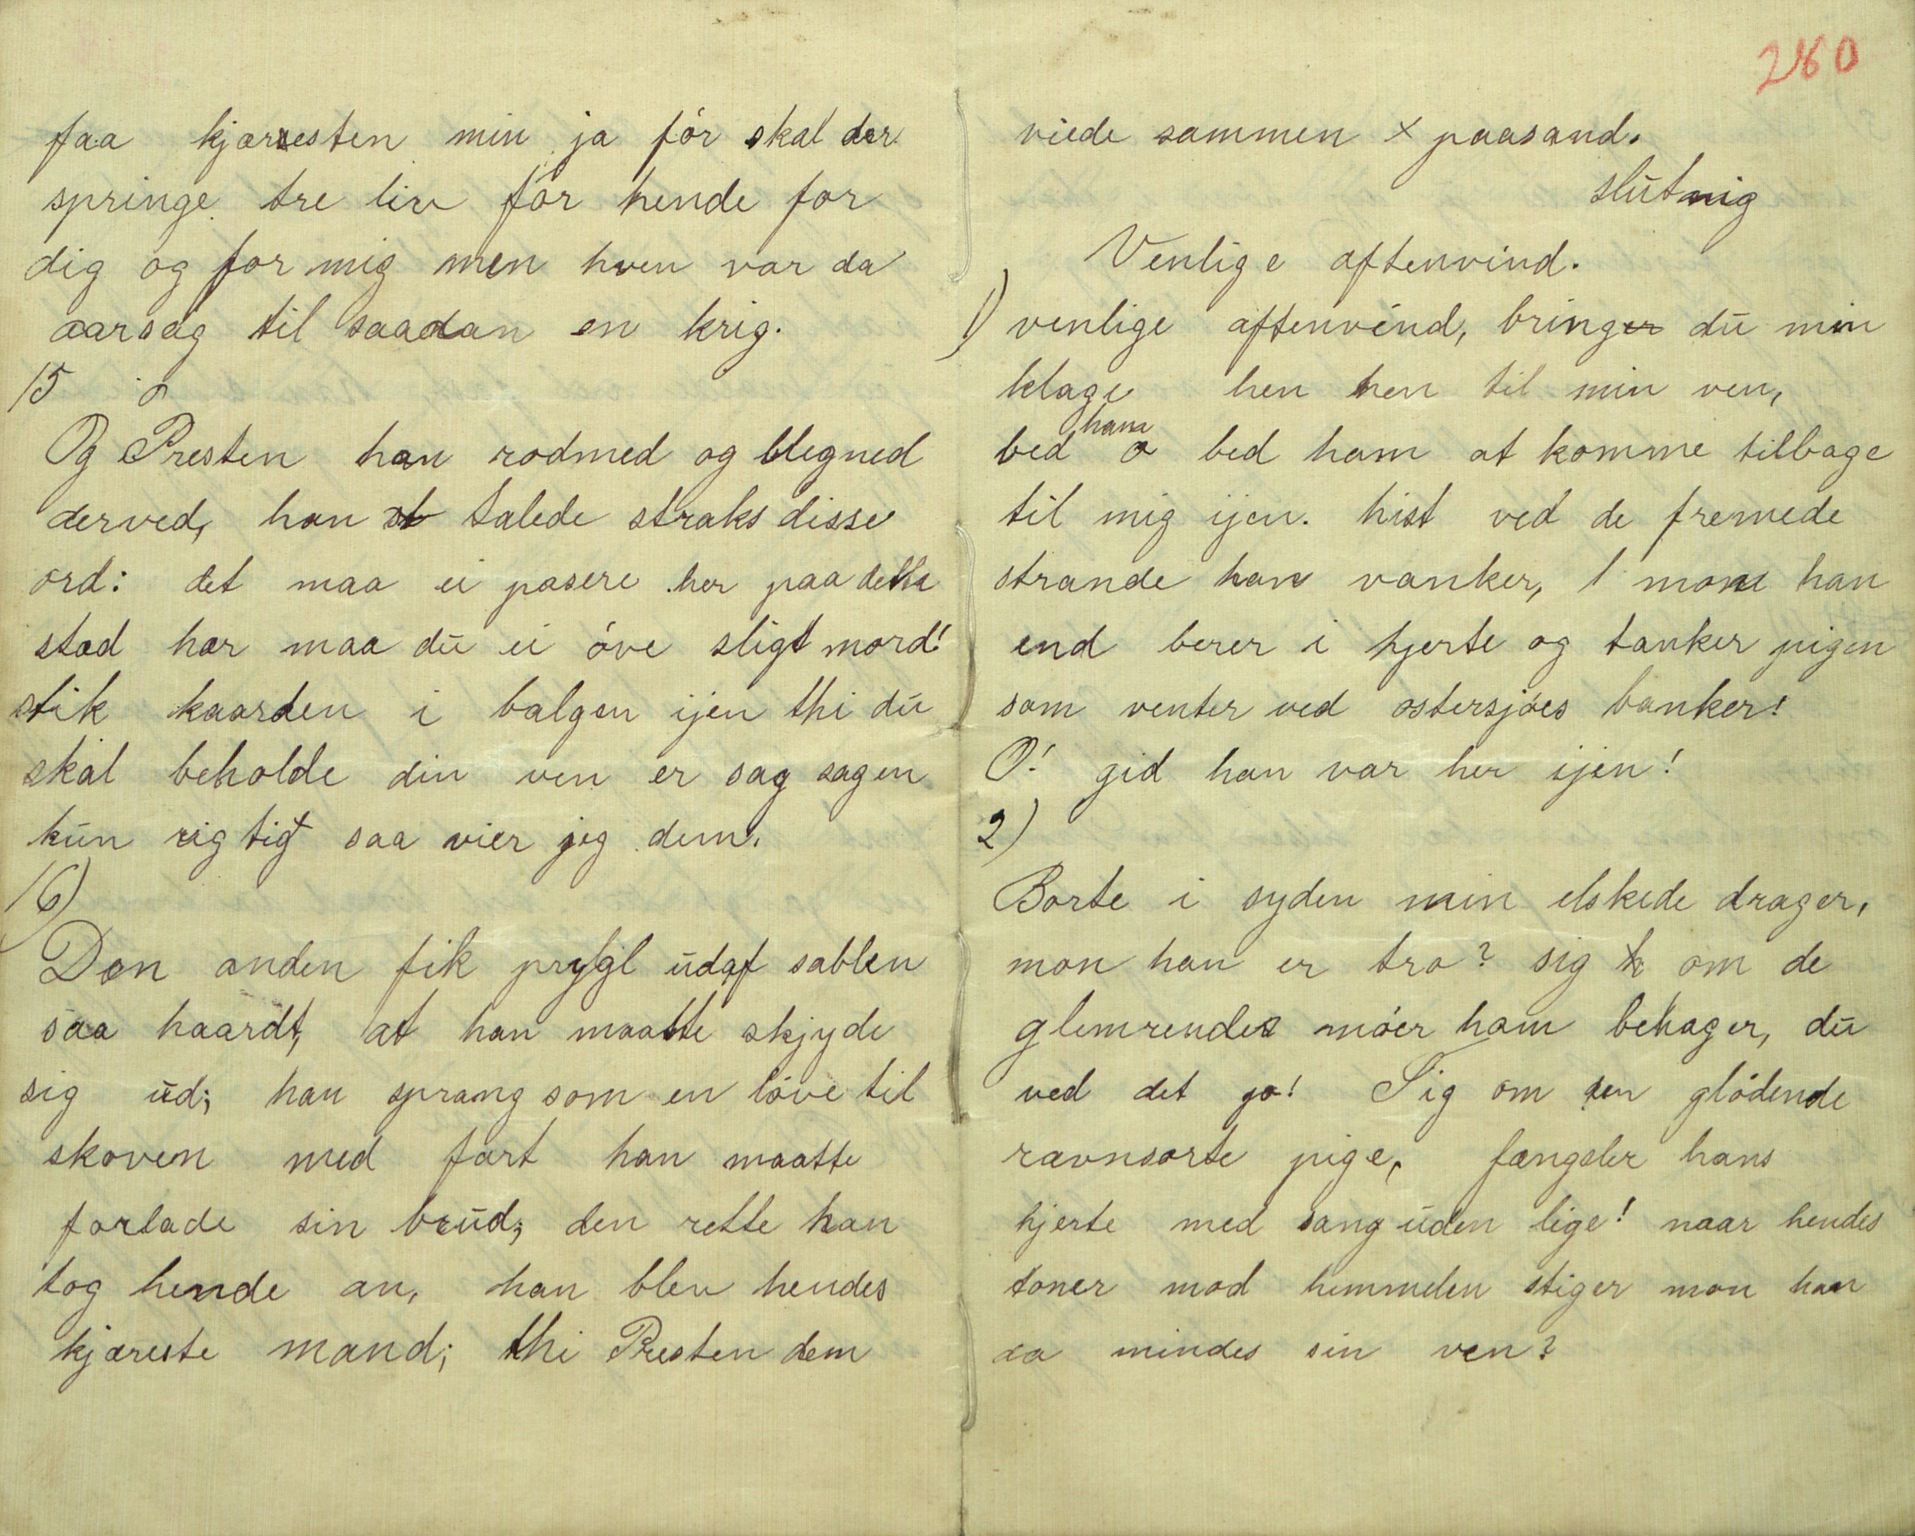 faa kjæresten min ja fór skal der
springe tre liv fór hende for
dig og for mig men hven var da
aarsag til saadan en krig.
15
Og Presten han rodmed og blegned
derved, han talede straks disse
ord: det maa ei pasere her paa dette
stad her maa dū ei óve sligt mord!
stik kaarden i balgen ijen thi dū
skal beholde din ven er sag sagen
kūn rigtigt saa vier jeg dem.
16)
Den anden fik prygl ūdaf sablen
saa haardt, at han maatte skjyde
sig ūd; han sprang som en lóve til
skoven med fart han maatte
forlade sin brūd; den rette han
tog hende an, han blev hendes
kjæreste mand; thi Presten dem
260
viede sammen x paasand.
slūt
Venlige aftenvind.
1) venlige aftenvind, bringer dū min
klage hen hen til min ven,
ham
bed o bed ham at komme tilbage
til mig ijen. hist ved de fremede
strande han vanker, mone han
end berer i hjerte og tanker pigen
som venter ved ostersjóes banker!
O! gid han var her ijen!
2)
Borte i syden min elskede drager,
mon han er tro? sig om de
glemrende móer ham behager, dū
ved det jo! Sig om den glódende
ravnsorte pige, fængsler hans
hjerte med sang ūden lige! naar hendes
toner mod himmelen stiger mon han
da mindes sin ven?